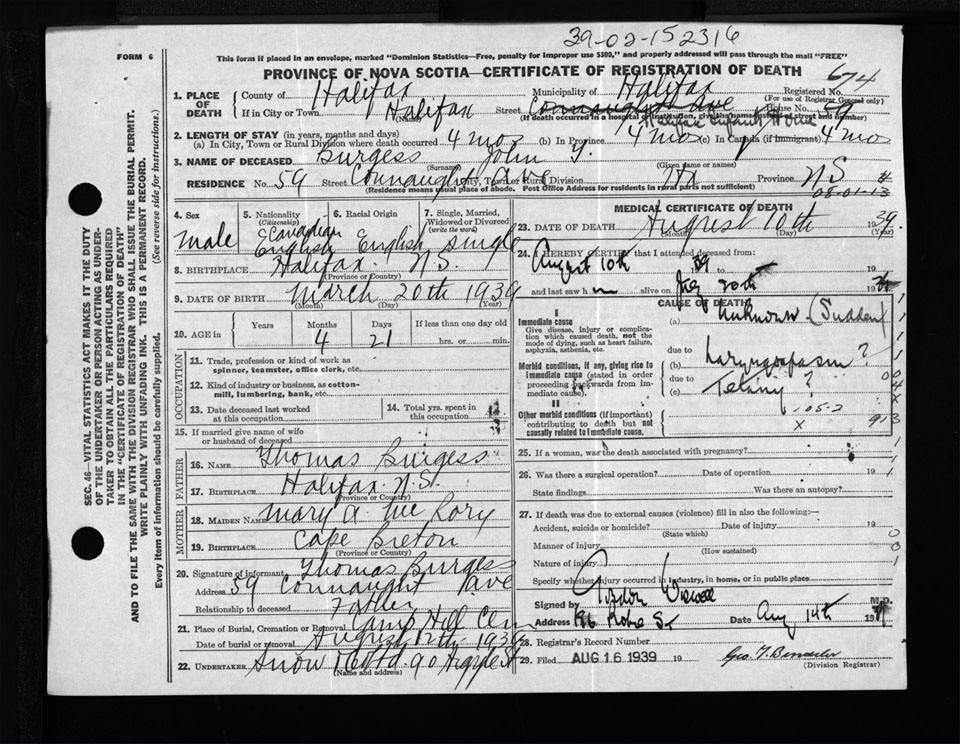 39-02-152316
FORM 6
This form if placed in an envelope, marked "Dominion Statistics—Free, penalty for improper use $300," and properly addressed will pass through the mail "FREE"
PROVINCE OF NOVA SCOTIA—CERTIFICATE OF REGISTRATION OF DEATH
674
1. PLACE OF DEATH
County of Halifax
Municipality of Halifax
Registered No.
(For use of Registrar General only)
If in City or Town Halifax
(Name)
Street Connaught Ave
House No. 59
(If death occurred in a hospital or institution, give the name instead of street and number)
Halifax Infant Home
2. LENGTH OF STAY (in years, months and days)
(a) In City, Town or Rural Division where death occurred 4 mos (b) in Province 4 mos (c) in Canada (if immigrant) 4 mo
3. NAME OF DECEASED Burgess John
(Surname) (Given name or names)
RESIDENCE No. 59 Street Connaught Ave City, Town or Rural Division Hfx Province N S
(Residence means usual place of abode. Post Office Address for residents in rural parts not sufficient)
08-01-13
4. Sex
male
5. Nationality
(Citizenship)
Canadian
English
6. Racial Origin
English
7. Single, Married, Widowed or Divorced
(write the word)
single
8. BIRTHPLACE Halifax N.S.
(Province or Country)
9. DATE OF BIRTH March 20th 1939
(Month) (Day) (Year)
10. AGE in
Years Months Days If less than one day old
4 21 hrs. or min.
OCCUPATION
11. Trade, profession or kind of work as spinner, teamster, office clerk, etc.
12. Kind of industry or business, as cotton-mill, lumbering, bank, etc.
13. Date deceased last worked at this occupation
14. Total yrs. spent in this occupation
15. If married give name of wife or husband of deceased
FATHER
16. NAME Thomas Burgess
17. BIRTHPLACE Halifax N.S.
(Province or Country)
MOTHER
18. MAIDEN NAME Mary A. Mc Rory
19. BIRTHPLACE Cape Breton
(Province or Country)
20. Signature of informant Thomas Burgess
Address 59 Connaught Ave
Relationship to deceased Father
21. Place of Burial, Cremation or Removal Camp Hill Cem
Date of burial or removal August 12th 1939
22. UNDERTAKER Snow & Co Ltd. 90 Argyle St
(Name and address)
MEDICAL CERTIFICATE OF DEATH
23. DATE OF DEATH August 10th 1939
(Month) (Day) (Year)
24. I HEREBY CERTIFY that I attended deceased from
August 10th 39 to 19
and last saw h m alive on July 20th 19
CAUSE OF DEATH
I
Immediate cause
Give disease, injury or complication which caused death, not the mode of dying, such as heart failure, asphyxia, asthenia, etc.
(a) Unknown (Sudden)
due to
Morbid conditions, if any, giving rise to immediate cause (stated in order proceeding backwards from immediate cause).
(b) Laryngospasm ?
due to
(c) Tetany ?
II
Other morbid conditions (if important) contributing to death but not causally related to immediate cause.
105-2
25. If a woman, was the death associated with pregnancy?
26. Was there a surgical operation? Date of operation 19
State findings Was there an autopsy?
27. If death was due to external causes (violence) fill in also the following:—
Accident, suicide or homicide? Date of injury 19
(State which)
Manner of injury
(How sustained)
Nature of injury
Specify whether injury occurred in industry, in home, or in public place
Signed by Gordon Wiswell M.D.
Address 196 Robie St Date Aug 14th 19
28. Registrar's Record Number
29. Filed AUG 16 1939 19
(Division Registrar)
SEC. 46—VITAL STATISTICS ACT MAKES IT THE DUTY OF THE UNDERTAKER OR PERSON ACTING AS UNDERTAKER TO OBTAIN ALL THE PARTICULARS REQUIRED IN THE "CERTIFICATE OF REGISTRATION OF DEATH"
AND TO FILE THE SAME WITH THE DIVISION REGISTRAR WHO SHALL ISSUE THE BURIAL PERMIT.
WRITE PLAINLY WITH UNFADING INK. THIS IS A PERMANENT RECORD.
Every item of information should be carefully supplied. (See reverse side for instructions.)